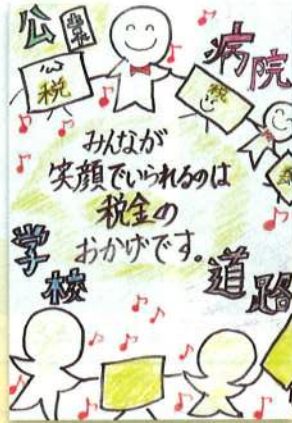 公園
病院
税
税
みんなが
笑顔でいられるのは
税金の
おかげです。
学校
道路